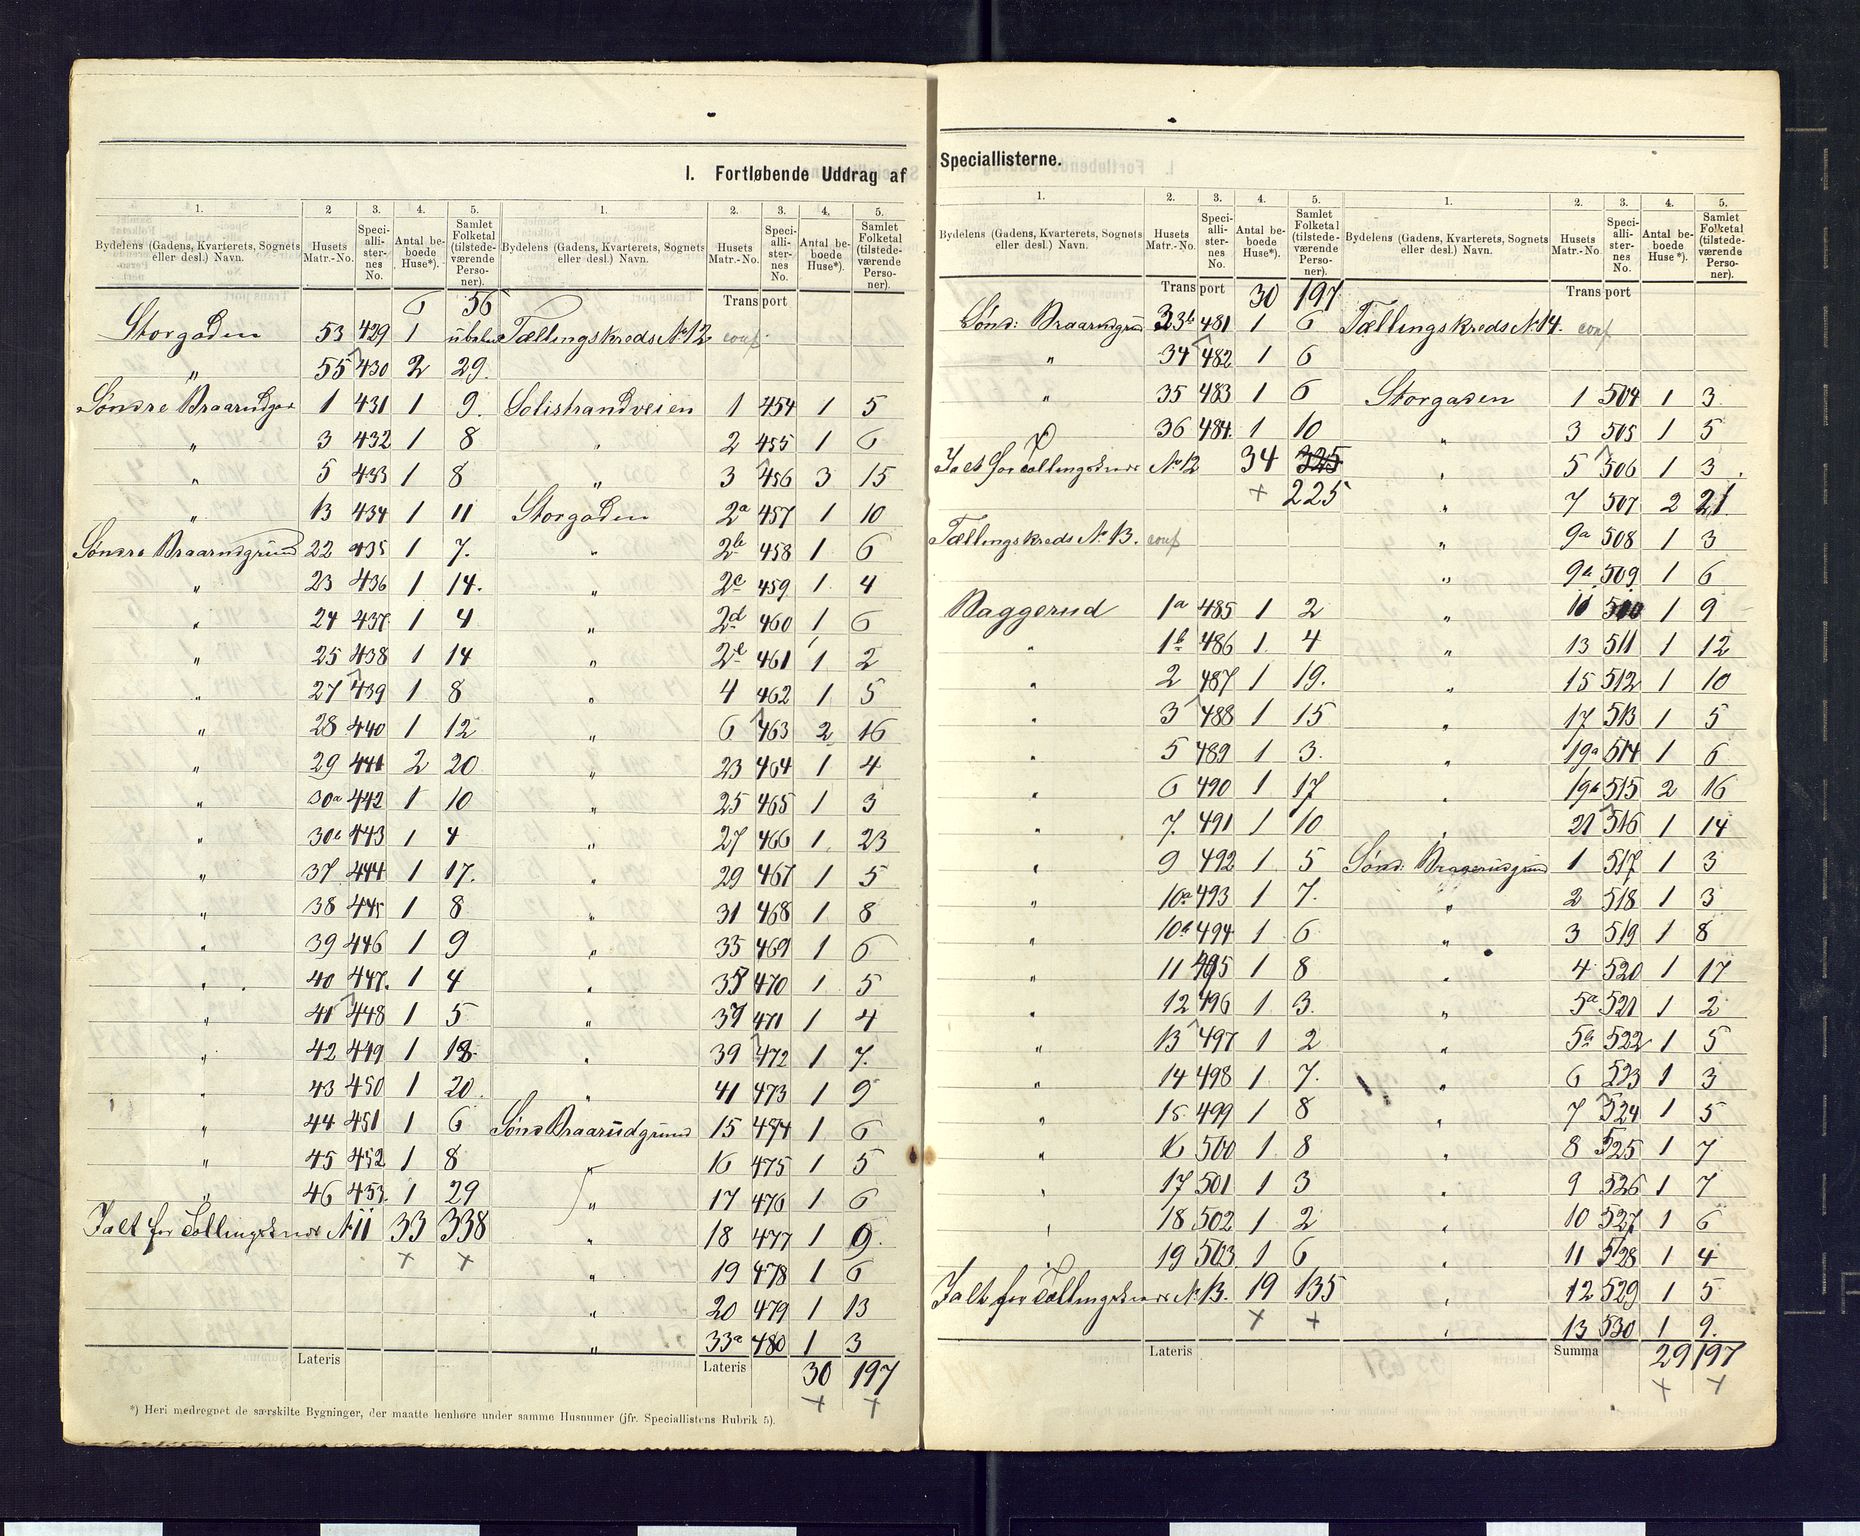 I. Fortløbende Uddrag af
1. 2 3. 4. 5. 1. 2. 3. 4. 5.
Bydelens (Gadens, Kvarterets, Sognets eller desl.) Navn. Husets Matr.-No. Speciallisternes No. Antal beboede Huse*). Samlet Folketal (tilstedeværende Personer). Bydelens (Gadens, Kvarterets, Sognets eller desl.) Navn. Husets Matr.-No. Speciallisternes No. Antal beboede Huse*). Samlet Folketal (tilstedeværende Personer).
6 56 Transport
Storgaden 53 429 1 Tællingskreds No 12 conf.
" 55 430 2 29.
Søndre Braarudgd 1 431 1 9. Solistrandveien 1 454 1 5
" 3 432 1 8 " 2 455 1 6
" 5 433 1 8 " 3 456 3 15
" 13 434 1 11 Storgaden 2a 457 1 10
Søndre Braarudgrund 22 435 1 7. " 2b 458 1 6
" 23 436 1 14. " 2c 459 1 4
" 24 437 1 4 " 2d 460 1 6
" 25 438 1 14 " 2e 461 1 2
" 27 439 1 8 " 4 462 1 5
" 28 440 1 12 " 6 463 2 16
" 29 441 2 20 " 23 464 1 4
" 30a 442 1 10 " 25 465 1 3
" 30b 443 1 4 " 27 466 1 23
" 37 444 1 17. " 29 467 1 5
" 38 445 1 8 " 31 468 1 8
" 39 446 1 9 " 33 469 1 6
" 40 447 1 4 " 35 470 1 5
" 41 448 1 5 " 37 471 1 4
" 42 449 1 18 " 39 472 1 7.
" 43 450 1 20 " 41 473 1 9
" 44 451 1 6 Sønd Braarudgrund 15 474 1 6
" 45 452 1 8 " 16 475 1 5
" 46 453 1 29 " 17 476 1 6
Ialt for Tællingskreds No 11 33 338 " 18 477 1 9.
" 19 478 1 6
" 20 479 1 13
" 33a 480 1 3
Lateris Lateris 30 197
*) Heri medregnet de særskilte Bygninger, der maatte henhøre under samme Husnumer (jfr. Speciallistens Rubrik 5).
Speciallisterne.
1. 2. 3. 4. 5. 1. 2. 3. 4. 5.
Bydelens (Gadens, Kvarterets, Sognets eller desl.) Navn. Husets Matr.-No. Speciallisternes No. Antal beboede Huse*). Samlet Folketal (tilstedeværende Personer). Bydelens (Gadens, Kvarterets, Sognets eller desl.) Navn. Husets Matr.-No. Speciallisternes No. Antal beboede Huse*). Samlet Folketal (tilstedeværende Personer).
Transport 30 197 Transport
Sønd: Braarudgrund 33b 481 1 6 Tællingskreds No 14. conf
" 34 482 1 6
" 35 483 1 6 Storgaden 1 504 1 3
36 484 1 10 " 3 505 1 5
Ialt for Tællingskreds No 12 34 325 " 5 506 1 3
225 " 7 507 2 21
Tællingskreds No. 13. conf " 9a 508 1 3
" 9b 509 1 6
Baggerud 1a 485 1 2 " 11 510 1 9
" 1b 486 1 4 " 13 511 1 12
" 2 487 1 19. " 15 512 1 10
" 3 488 1 15 " 17 513 1 5
" 5 489 1 3. " 19a 514 1 6
" 6 490 1 17 " 19b 515 2 16
" 7. 491 1 10 " 21 516 1 14
" 9 492 1 5 Sønd: Braarudgrund 1 517 1 3
" 10a 493 1 7. " 2 518 1 3
" 10b 494 1 6 " 3 519 1 8
" 11 495 1 8 " 4 520 1 17
" 12 496 1 3. " 5a 521 1 2
" 13 497 1 2 " 5b 522 1 5
" 14 498 1 7. " 6 523 1 3
" 15 499 1 8 " 7 524 1 5
" 16 500 1 8 " 8 525 1 7
" 17 501 1 3 " 9 526 1 7
" 18 502 1 2 " 10 527 1 6
" 19 503 1 6 " 11 528 1 4
Ialt for Tællingskreds No 13. 19 135 " 12 529 1 5
" 13 530 1 9.
Lateris Summa 29 197